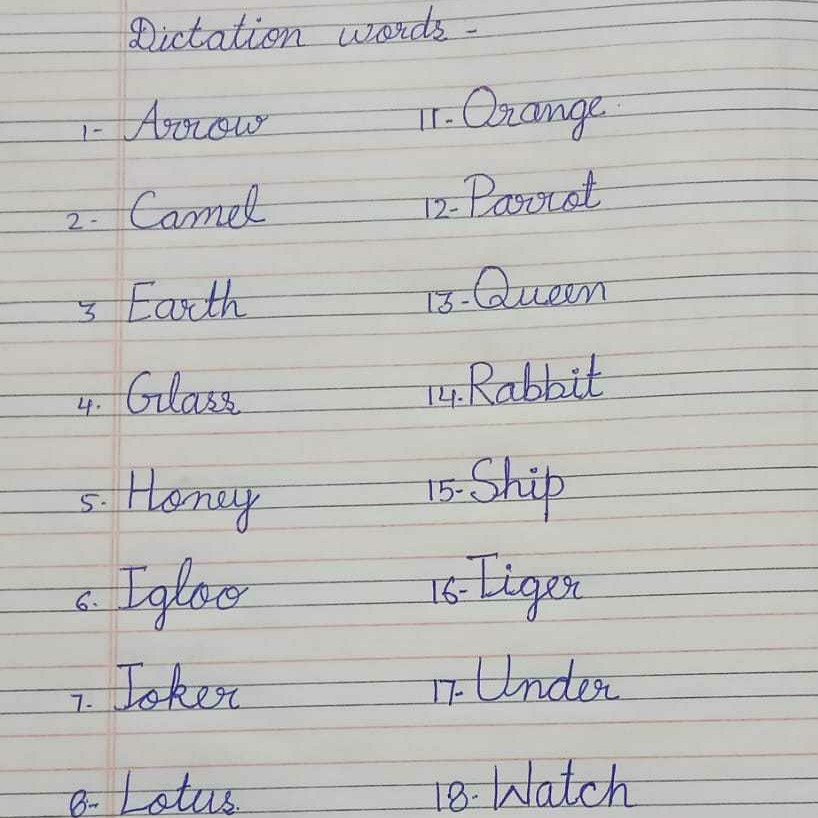 Dictation words -
1- Arrow 11- Orange
2- Camel 12- Parrot
3 Earth 13- Queen
4. Glass 14. Rabbit
5. Honey 15- Ship
6. Igloo 16- Tiger
7. Joker 17- Under
8- Lotus 18- Watch